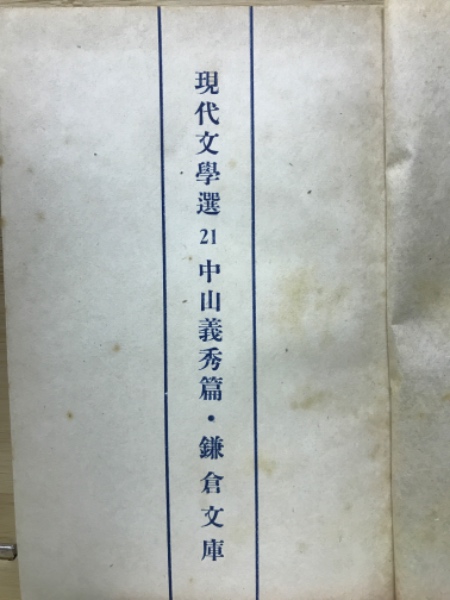 現代文學選21中山義秀篇・鎌倉文庫